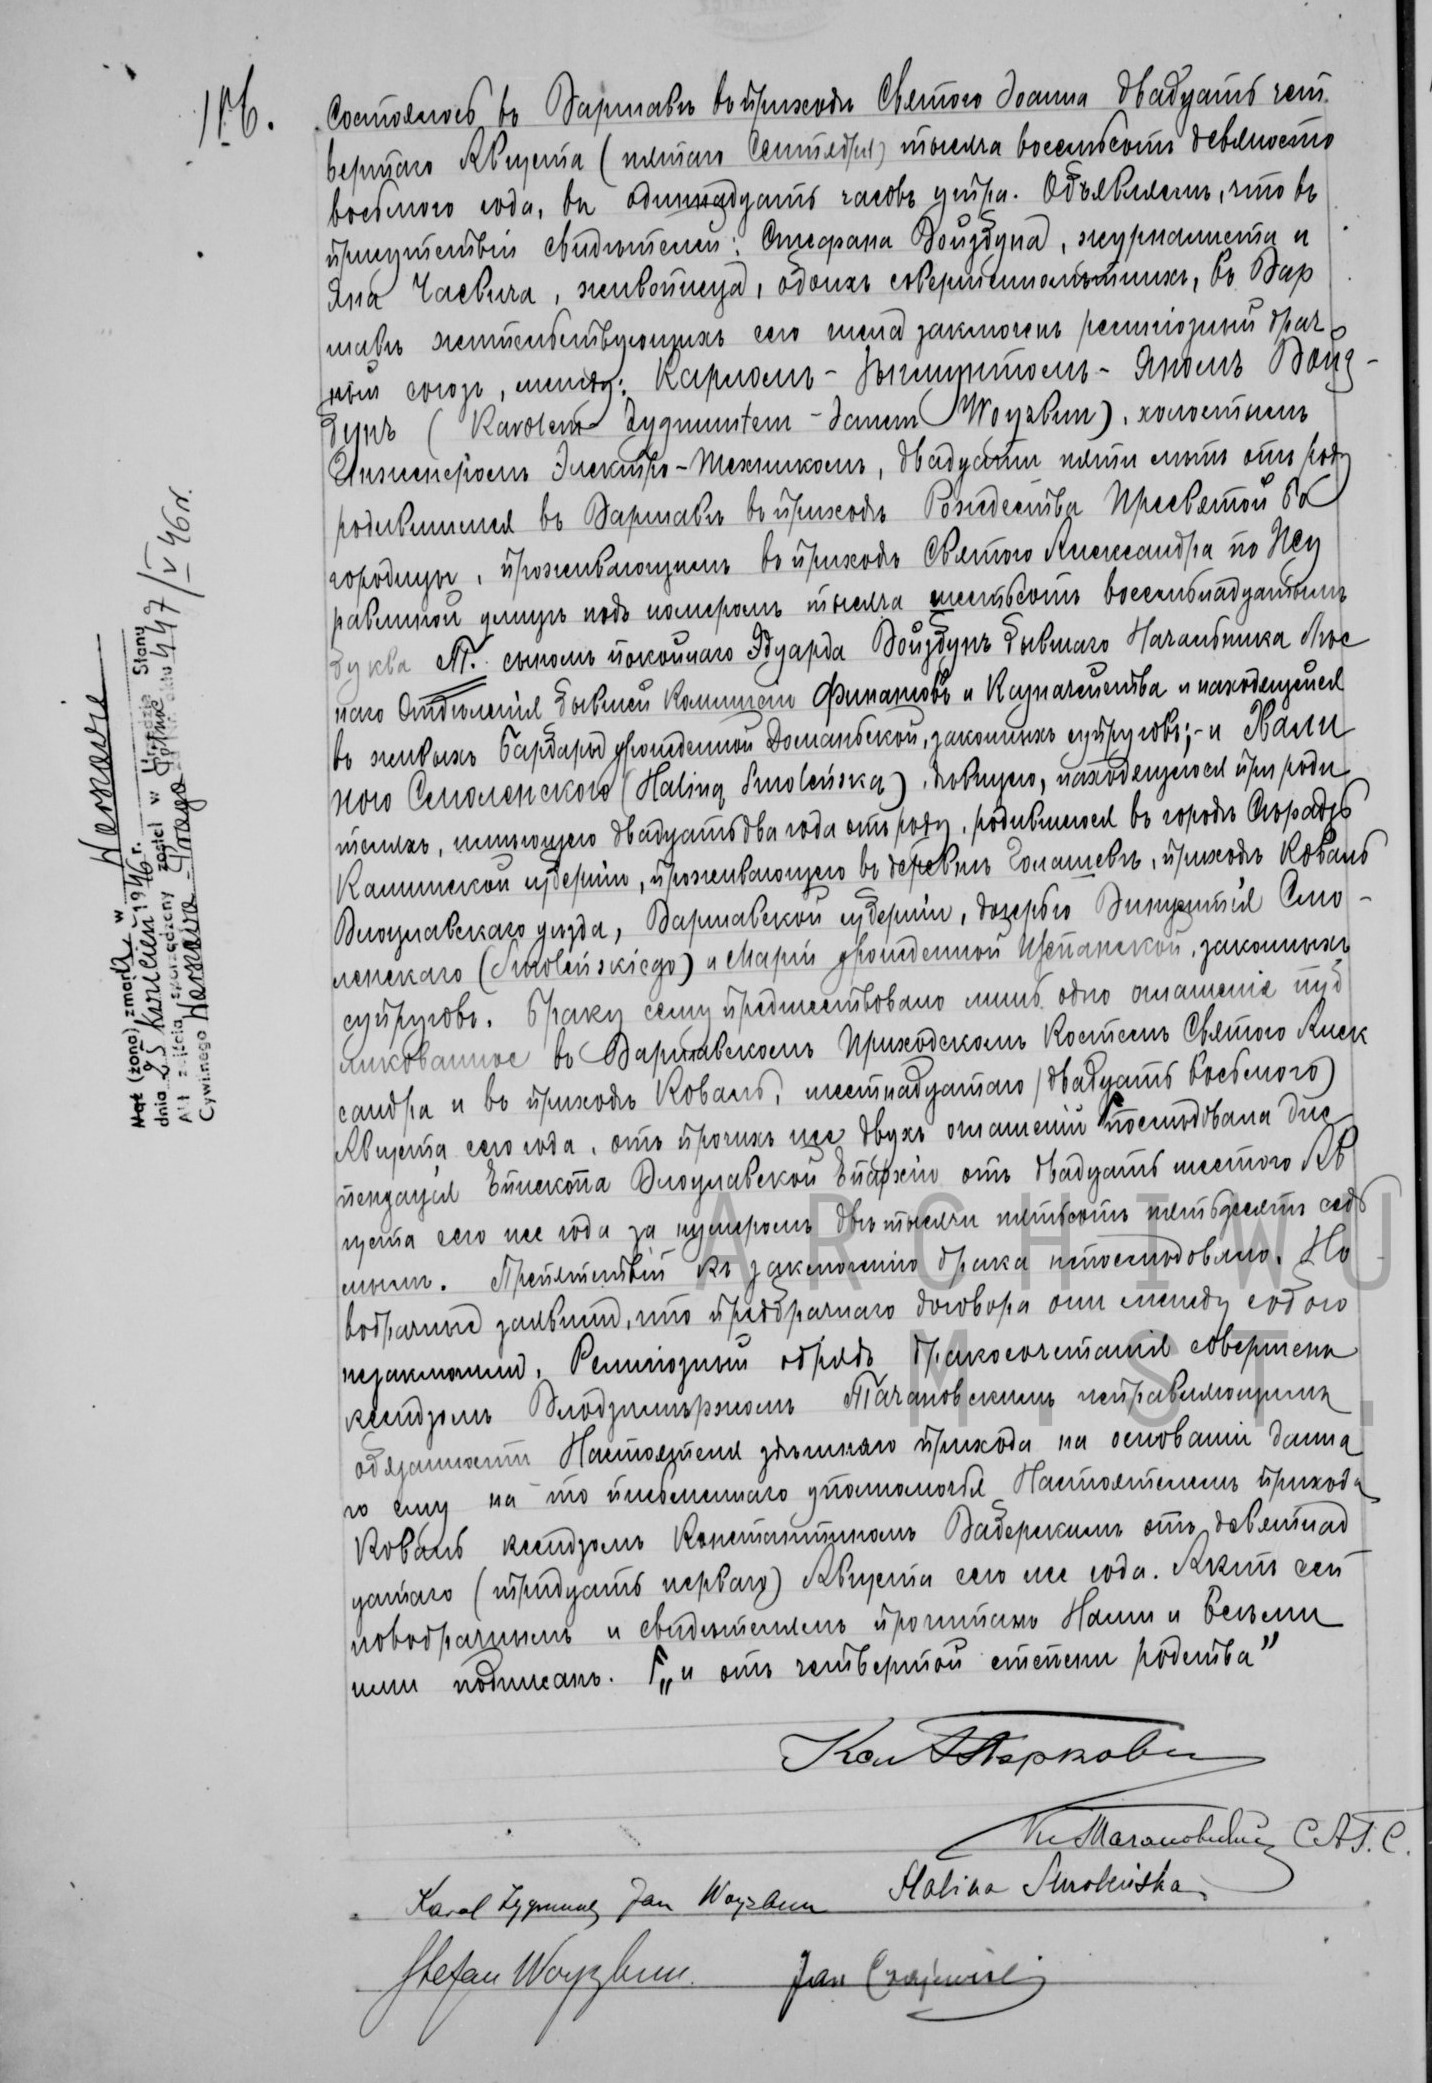 Состоялось въ Варшавѣ въ приходѣ Святого Іоанна двадцать чет
вертаго Августа (пятаго Сентября) тысяча восемьсотъ девяносто
восьмого года, въ одинадцать часовъ утра. Объявляемъ, что въ
присутствіи свидѣтелей: Стефана Войзбуна, журналиста и
Яна, живописца, обоихъ совершеннолѣтнихъ, въ Вар
шавѣ жительствующихъ сего числа заключенъ религіозный брач
ный союзъ, между: Карломъ-Зыгмунтомъ-Яномъ Войз-
бунъ (Karolem Zygmuntem-Janem Woyzbun), холостымъ
Инженеромъ Электро-Техникомъ, двадцати пяти лѣтъ отъ роду
родившимся въ Варшавѣ въ приходѣ Рождества Пресвятой Бо
городицы, проживающимъ въ приходѣ Святого Александра по Жу
равлиной улицѣ подъ номеромъ тысяча шестьсотъ восемьнадцатымъ
буква М. сыномъ покойнаго Эдуарда Войзбунъ бывшаго Начальника Лѣс
наго Отдѣленія бывшей Коммисіи Финансовъ и Казначейства и находящейся
въ живыхъ Барбары урожденной Доманьской, законныхъ супруговъ;- и Хали
ною Смоленскою (Halina Smoleńską), дѣвицею, находящеюся при роди
теляхъ, имѣющею двадцать два года отъ роду, родившеюся въ городѣ Сѣрадзь
Калишской губерніи, проживающею въ деревнѣ Голашевѣ, приходѣ Коваль
Влоцлавскаго уѣзда, Варшавской губерніи, дочерью Винцентія Смо-
ленскаго (Smoleńskiego) и Маріи урожденной Щепанской, законныхъ
супруговъ. Браку сему предшествовало лишь одно оглашеніе пуб
ликованное въ Варшавскомъ Приходскомъ Костелѣ Святого Алек
сандра и въ приходѣ Коваль, шестнадцатаго (двадцать восьмого)
Августа сего года, отъ прочихъ же двухъ оглашеній Г послѣдовала дис
пензація Епископа Влоцлавской Епархіи отъ двадцать шестого Ав
густа сего же года за нумеромъ двѣ тысячи пятьсотъ пятьдесятъ седь
мымъ. Препятствій къ заключенію брака непослѣдовало. Но
вобрачные заявили, что предбрачнаго договора они между собою
незаключили. Религіозный обрядъ бракосочетанія совершенъ
ксендзомъ Влодзимѣржомъ Тачановскимъ исправляющимъ
обязанности Настоятеля здѣшняго прихода на основаніи данна
го ему на то письменнаго уполномочія Настоятелемъ прихода
Коваль ксендзомъ Константиномъ отъ девятнад
цатаго (тридцать перваго) Августа сего же года. Актъ сей
новобрачнымъ и свидѣтелямъ прочитанъ Нами и всѣми
ими подписанъ. Г „и отъ четвертой степени родства”
Тачановскій С.А.Г.С.
Karol Zygmunt Jan Woyzbun Halina Smoleńska
Stefan Woyzbun. Jan
Mąż (żona) zmarła w Warszawie
dnia 25 kwietnia 1946 r.
Akt zejścia sporządzony został w Urzędzie Stanu
Cywilnego Warszawa Praga 447/V 46 r.